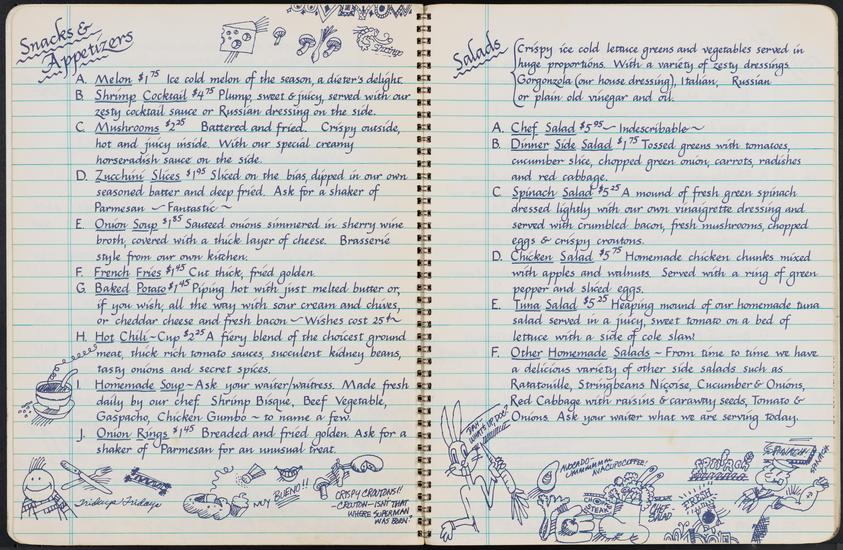 Snacks &
Appetizers
Shrimp
A. Melon $1.75 Ice cold melon of the season, a dieter's delight.
B. Shrimp Cocktail $4.75 Plump, sweet & juicy, served with our
zesty cocktail sauce or Russian dressing on the side.
C. Mushrooms $2.25 Battered and fried. Crispy outside,
hot and juicy inside. With our special creamy
horseradish sauce on the side.
D. Zucchini Slices $1.95 Sliced on the bias, dipped in our own
seasoned batter and deep fried. Ask for a shaker of
Parmesan ~ Fantastic ~
E. Onion Soup $1.85 Sauteed onions simmered in sherry wine
broth, covered with a thick layer of cheese. Brasserie
style from our own kitchen.
F. French Fries $1.45 Cut thick, fried golden.
G. Baked Potato $1.45 Piping hot with just melted butter or,
if you wish, all the way with sour cream and chives,
or cheddar cheese and fresh bacon ~ Wishes cost 25¢ ~
H. Hot Chili ~ Cup $2.25 A fiery blend of the choicest ground
meat, thick rich tomato sauces, succulent kidney beans,
tasty onions and secret spices.
I. Homemade Soup ~ Ask your waiter/waitress. Made fresh
daily by our chef Shrimp Bisque, Beef Vegetable,
Gaspacho, Chicken Gumbo ~ to name a few.
J. Onion Rings $1.45 Breaded and fried golden. Ask for a
shaker of Parmesan for an unusual treat.
Fridays Fridays
MUY BUENO!!
CRISPY CROUTONS!!
~CROUTON~ ISN'T THAT
WHERE SUPERMAN
WAS BORN?
Salads
Crispy ice cold lettuce greens and vegetables served in
huge proportions. With a variety of zesty dressings
Gorgonzola (our house dressing), Italian, Russian
or plain old vinegar and oil.
A. Chef Salad $5.95 ~ Indescribable ~
B. Dinner Side Salad $1.75 Tossed greens with tomatoes,
cucumber slice, chopped green onion, carrots, radishes
and red cabbage.
C. Spinach Salad $5.25 A mound of fresh green spinach
dressed lightly with our own vinaigrette dressing and
served with crumbled bacon, fresh mushrooms, chopped
eggs & crispy croutons.
D. Chicken Salad $5.75 Homemade chicken chunks mixed
with apples and walnuts. Served with a ring of green
pepper and sliced eggs.
E. Tuna Salad $5.25 Heaping mound of our homemade tuna
salad served in a juicy, sweet tomato on a bed of
lettuce with a side of cole slaw!
F. Other Homemade Salads ~ From time to time we have
a delicious variety of other side salads such as
Ratatouille, Stringbeans Niçoise, Cucumber & Onions,
Red Cabbage with raisins & caraway seeds, Tomato &
Onions. Ask your waiter what we are serving today.
WHAT'S UP, DOC?
AVOCADO~
CHEF
SALAD
STEAK
FRESH
SPINACH
SPINACH